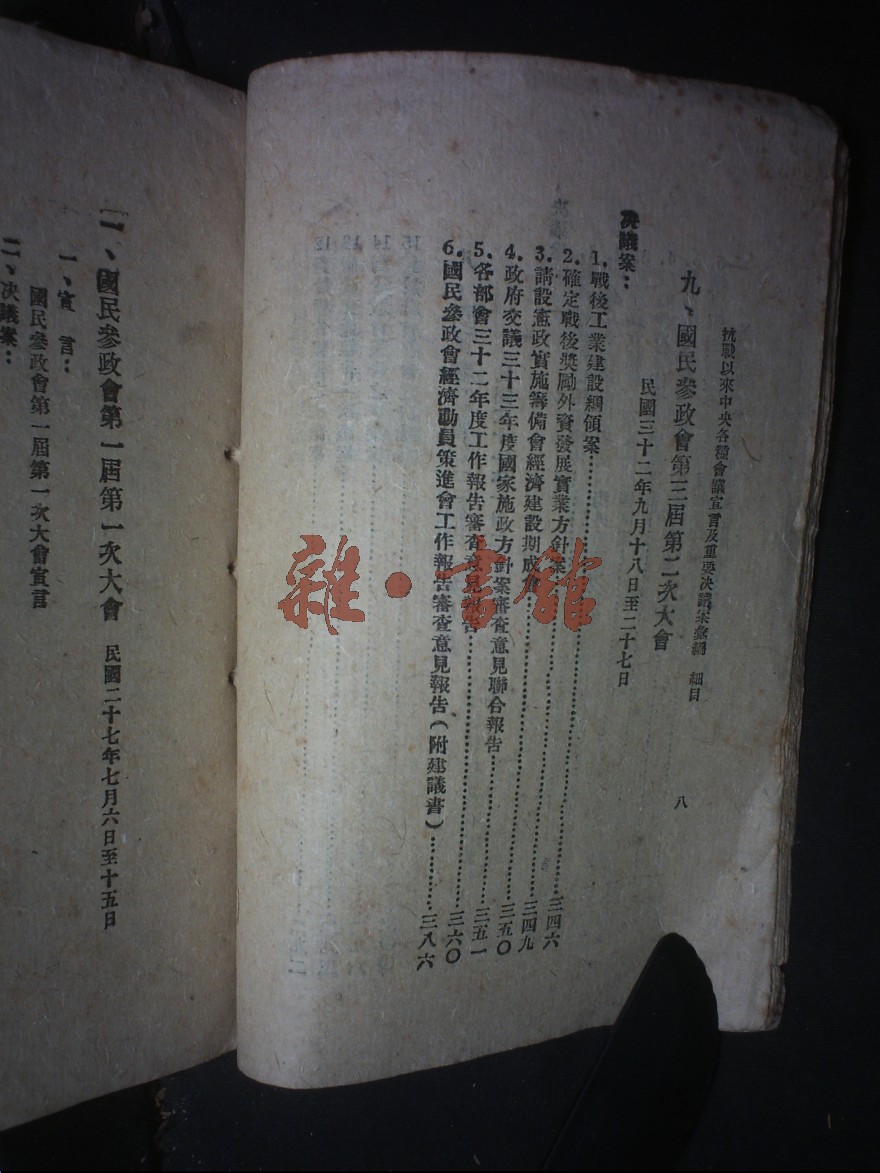 抗戰以來中央各種會議宣言及重要決議案彙編 細目 八
九、國民參政會第三屆第二次大會
民國三十二年九月十八日至二十七日
決議案：
1.戰後工業建設綱領案……三四六
2.確定戰後獎勵外資發展實業方針案……三四九
3.請設憲政實施籌備會經濟建設期成會……三五〇
4.政府交議三十三年度國家施政方針案審查意見聯合報告……三五一
5.各部會三十二年度工作報告審查意見報告……三六〇
6.國民參政會經濟動員策進會工作報告審查意見報告(附建議書)……三八六
一、國民參政會第一屆第一次大會 民國二十七年七月六日至十五日
一、宣言：
國民參政會第一屆第一次大會宣言
二、決議案：
雜·書館